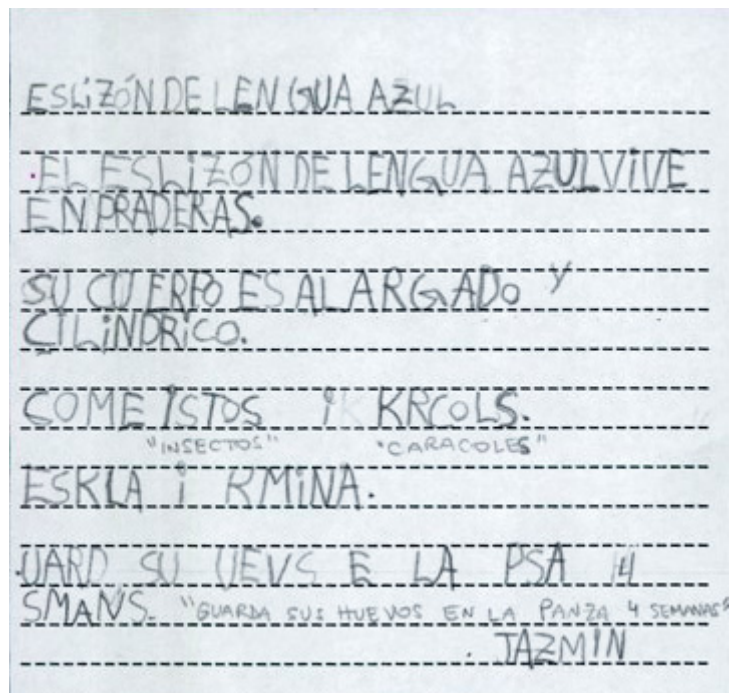 ESLiZÓN DE LENGUA AZUL
EL ESLiZÓN DE LENGUA AZUL ViVE
EN PRADERAS.
SU CUERPO ES ALARGADO Y
CiLiNDRiCO.
COME iSTOS i KRCOLS.
"INSECTOS" "CARACOLES"
ESKLA i KMiNA.
UARD SU UEVS E LA PSA 4
SMANS. "GUARDA SUS HUEVOS EN LA PANZA 4 SEMANAS"
JAZMIN